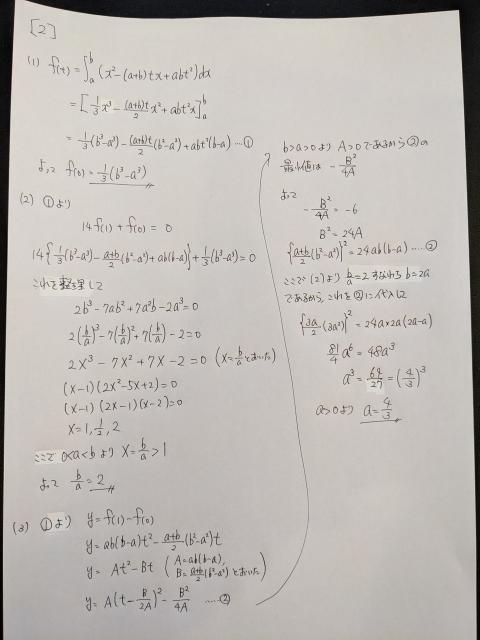 [2]
(1) f(t) = ∫_a^b (x² - (a+b)tx + abt²)dx
= [ 1/3 x³ - (a+b)t/2 x² + abt²x ]_a^b
= 1/3 (b³-a³) - (a+b)t/2 (b²-a²) + abt²(b-a) ……①
よって f(0) = 1/3 (b³-a³)
(2) ①より
14f(1) + f(0) = 0
14{ 1/3 (b³-a³) - a+b/2 (b²-a²) + ab(b-a) } + 1/3 (b³-a³) = 0
これを整理して
2b³ - 7ab² + 7a²b - 2a³ = 0
2(b/a)³ - 7(b/a)² + 7(b/a) - 2 = 0
2X³ - 7X² + 7X - 2 = 0 (X = b/a とおいた)
(X-1)(2X²-5X+2) = 0
(X-1)(2X-1)(X-2) = 0
X = 1, 1/2, 2
ここで 0<a<b より X = b/a > 1
よって b/a = 2
(3) ①より y = f(1) - f(0)
y = ab(b-a)t² - a+b/2 (b²-a²)t
y = At² - Bt ( A = ab(b-a),
B = a+b/2 (b²-a²) とおいた )
y = A(t - B/2A)² - B²/4A ……②
b>a>0より A>0であるから②の
最小値は - B²/4A
よって
- B²/4A = -6
B² = 24A
{ a+b/2 (b²-a²) }² = 24ab(b-a) ……②
ここで(2)より b/a = 2 すなわち b=2a
であるから、これを②に代入して
{ 3a/2 (3a²) }² = 24a×2a(2a-a)
81/4 a⁶ = 48a³
a³ = 64/27 = (4/3)³
a>0より a = 4/3